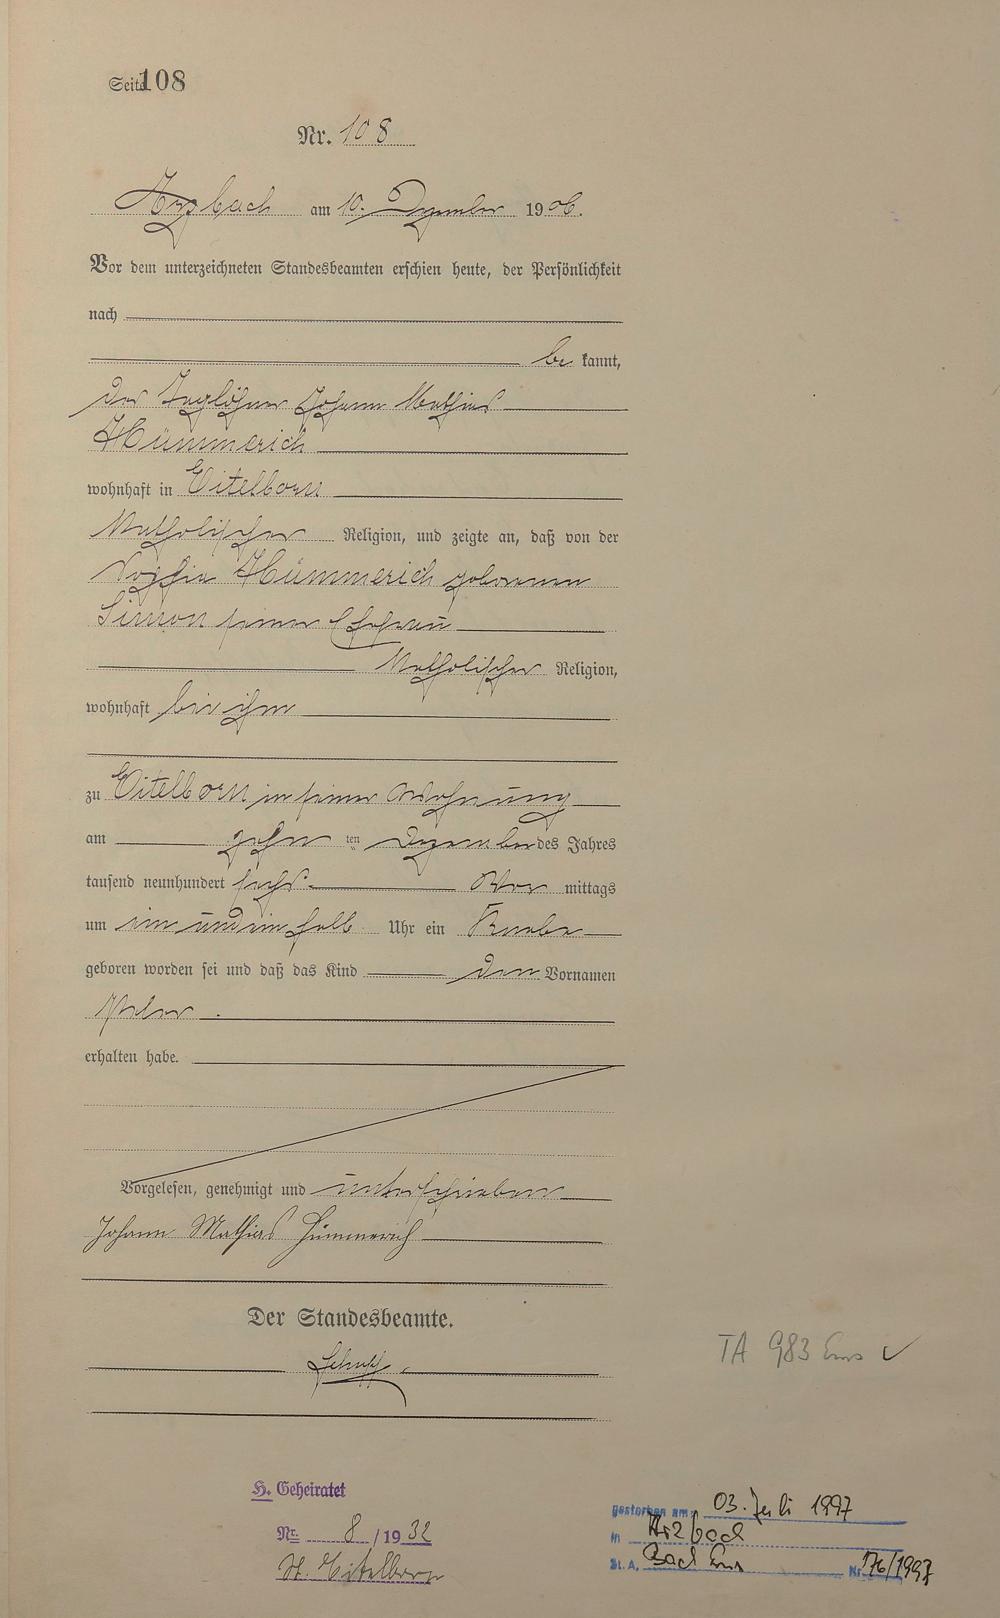 Seite 108
Nr. 108
Arzbach am 10. Dezember 1906.
Vor dem unterzeichneten Standesbeamten erschien heute, der Persönlichkeit
nach
be kannt,
der Taglöhner Johann Mathias
Hümmerich
wohnhaft in Eitelborn
katholischer Religion, und zeigte an, daß von der
Sophia Hümmerich geborenen
Simon seiner Ehefrau
katholischer Religion,
wohnhaft bei ihm
zu Eitelborn in seiner Wohnung
am zehn ten Dezember des Jahres
tausend neunhundert sechs Vor mittags
um ein und ein halb Uhr ein Knabe
geboren worden sei und daß das Kind den Vornamen
Peter.
erhalten habe.
Vorgelesen, genehmigt und unterschrieben
Johann Mathias Hümmerich
Der Standesbeamte.
TA 983 Ems ✓
H. Geheiratet
Nr. 8 /1932
St. Eitelborn
gestorben am: 03. Juli 1997
in Arzbach
St.A. Bad Ems Nr. 176/1997